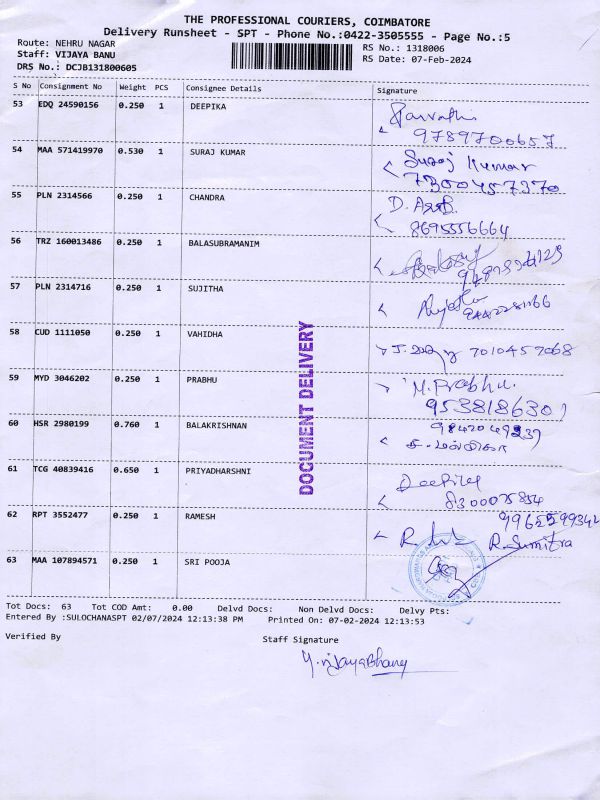 THE PROFESSIONAL COURIERS, COIMBATORE
Delivery Runsheet - SPT - Phone No.:0422-3505555 - Page No.:5
Route: NEHRU NAGAR
RS No.: 1318006
Staff: VIJAYA BANU
RS Date: 07-Feb-2024
DRS No.: DCJB131800605
S No Consignment No Weight PCS Consignee Details Signature
53 EDQ 24590156 0.250 1 DEEPIKA
9789700657
54 MAA 571419970 0.530 1 SURAJ KUMAR Suraj Kumar
7300457370
55 PLN 2314566 0.250 1 CHANDRA
8695556664
56 TRZ 160013486 0.250 1 BALASUBRAMANIM
57 PLN 2314716 0.250 1 SUJITHA
58 CUD 1111050 0.250 1 VAHIDHA 7010457068
59 MYD 3046202 0.250 1 PRABHU M. Prabhu.
9538186301
60 HSR 2980199 0.760 1 BALAKRISHNAN
61 TCG 40839416 0.650 1 PRIYADHARSHNI
62 RPT 3552477 0.250 1 RAMESH
R. Sumitra
63 MAA 107894571 0.250 1 SRI POOJA
DOCUMENT DELIVERY
Tot Docs: 63 Tot COD Amt: 0.00 Delvd Docs: Non Delvd Docs: Delvy Pts:
Entered By :SULOCHANASPT 02/07/2024 12:13:38 PM Printed On: 07-02-2024 12:13:53
Verified By Staff Signature